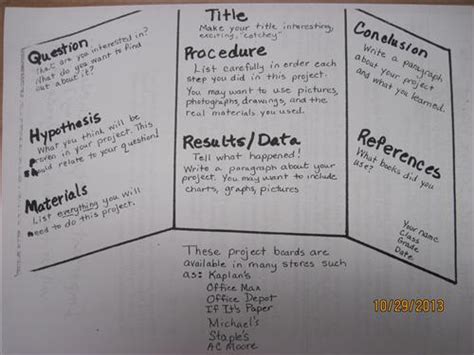 Question
What are you interested in?
What do you want to find
out about it?
Hypothesis
What you think will be
proven in your project. This
should relate to your question!
Materials
List everything you will
need to do this project.
Title
Make your title interesting,
exciting, "catchey"
Procedure
List carefully in order each
step you did in this project.
You may want to use pictures,
photographs, drawings, and the
real materials you used.
Results/Data
Tell what happened!
Write a paragraph about your
project. You may want to include
charts, graphs, pictures
Conclusion
Write a paragraph
about your project
and what you learned.
References
What books did you
use?
Your name
Class
Grade
Date
These project boards are
available in many stores such
as: Kaplan's
Office Max
Office Depot
If It's Paper
Michael's
Staple's
AC Moore
10/29/2013